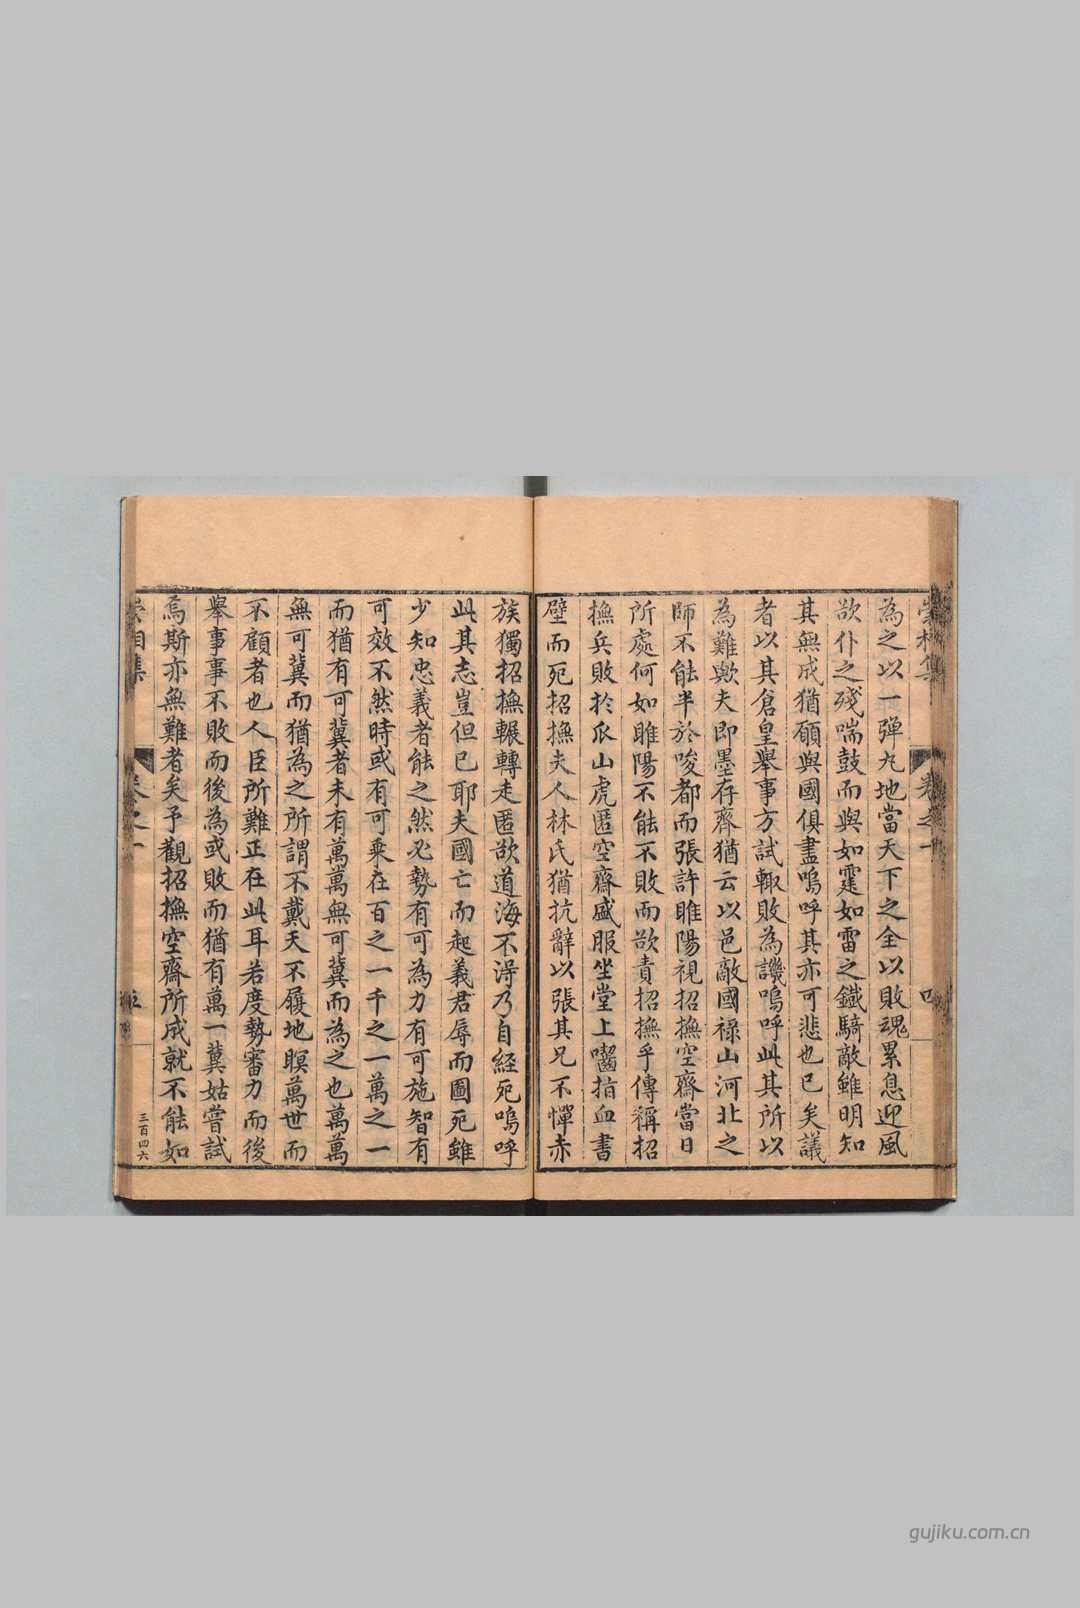 崇相集
卷之一
四
為之以一彈丸地當天下之全以敗魂累息迎風
欲仆之殘喘鼓而與如霆如雷之鐵騎敵雖明知
其無成猶願與國俱盡嗚呼其亦可悲也已矣議
者以其倉皇舉事方試輙敗為譏嗚呼此其所以
為難歟夫即墨存齊猶云以邑敵國祿山河北之
師不能半於唆都而張許睢陽視招撫空齋當日
所處何如睢陽不能不敗而欲責招撫乎傳稱招
撫兵敗於瓜山虎匿空齋盛服坐堂上嚙指血書
壁而死招撫夫人林氏猶抗辭以張其兄不憚赤
族獨招撫輾轉走匿欲道海不淂乃自經死嗚呼
此其志豈但已耶夫國亡而起義君辱而圖死雖
少知忠義者能之然必勢有可為力有可施智有
可效不然時或有可乗在百之一千之一萬之一
而猶有可冀者未有萬萬無可冀而為之也萬萬
無可冀而猶為之所謂不戴天不履地瞑萬世而
不顧者也人臣所難正在此耳若度勢審力而後
舉事事不敗而後為或敗而猶有萬一冀姑嘗試
焉斯亦無難者矣予觀招撫空齋所成就不能如
崇相集
卷之一
三百四六
gujiku.com.cn